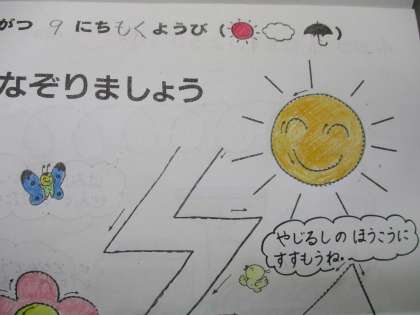 がつ 9 にち もく ようび (
なぞりましょう
やじるしの ほうこうに
すすもうね.